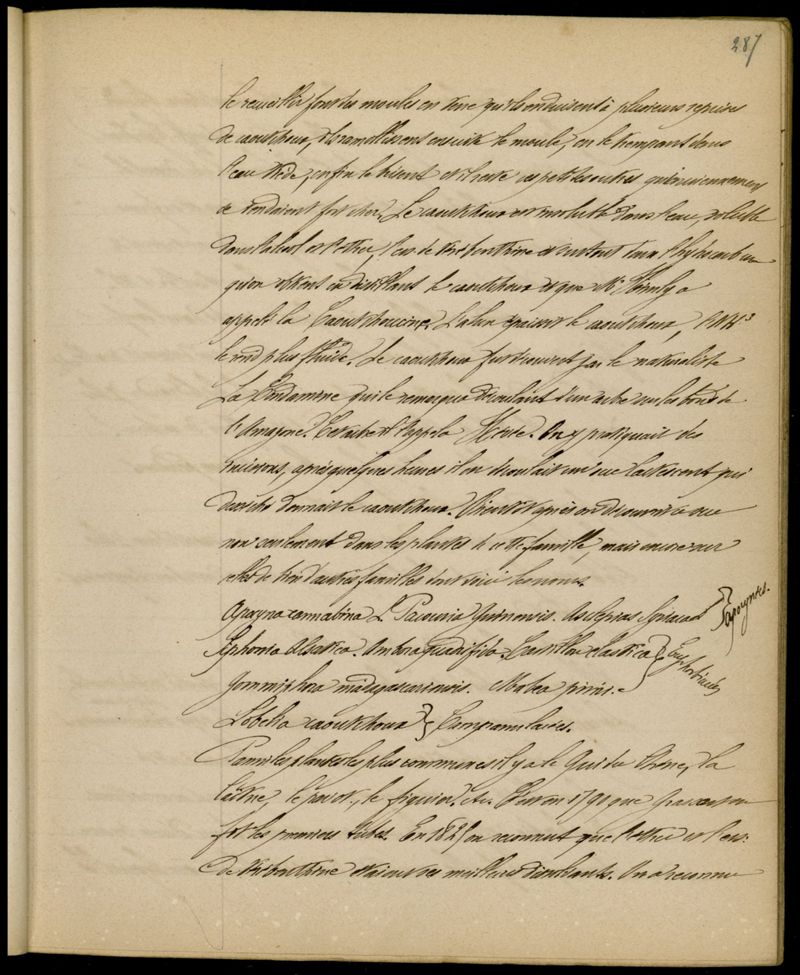 287
le recueillir font des moules en terre qu'ils enduisent à plusieurs reprises
de caoutchouc, ils ramollissent ensuite le moule, en le trempant dans
l'eau tiède, enfin le brisent et il reste ces petites outres qui anciennement
se vendaient fort cher. Le caoutchouc est insoluble dans l'eau, soluble
dans l'alcool et l'ether, l'ess. de térébenthine et surtout dans l'hydrocarbure
qu'on obtient en distillant le caoutchouc et que Mr
appelé la Caoutchoucine. L'alun épaissit le caoutchouc,
le rend plus fluide. Le caoutchouc fut découvert par le naturaliste
La Condamine qui le remarqua découlant d'un arbre sur les bords de
l'Amazone. Cet arbre s'appela Hévée. On y pratiquait des
incisions, après quelques heures il en découlait un suc lactescent qui
desséché donnait le caoutchouc. Bientôt après on découvrit ce suc
non seulement dans les plantes de cette famille, mais encore sur
celles de bien d'autres familles dont voici les noms.
Apocyna cannabina L. Asclepias Syriaca } apocynées.
Siphonia elastica. Castilloa elastica } Euphorbiacées
madagascariensis. Mabea
Lobelia caoutchouc } Campanulacées.
Parmi les plantes les plus communes il y a le Gui du Chêne, la
le pavot, le figuier. etc. C'est en 1791 que
fit les premiers tubes. En on reconnut que l'ether et l'ess:
de térébenthine étaient ses meilleurs dissolvants. On a reconnu